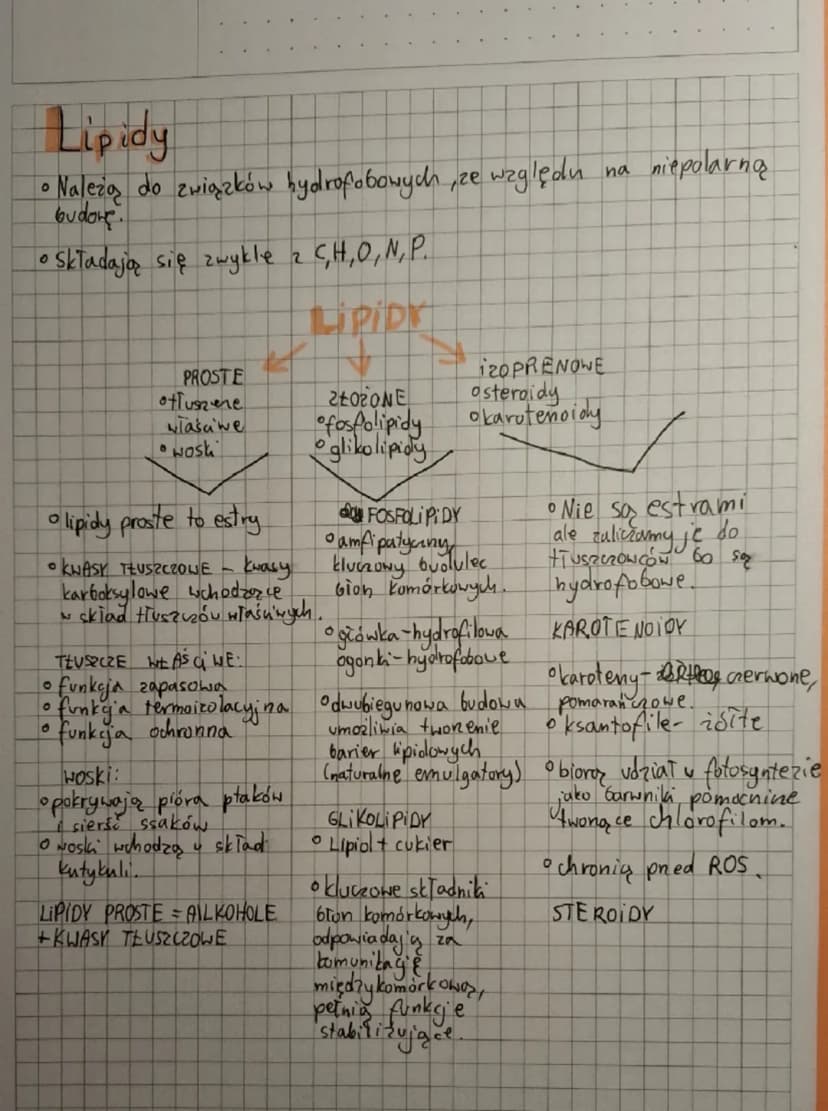 Lipidy
◦ Należą do związków hydrofobowych, ze względu na niepolarną
budowę.
◦ Składają się zwykle z C,H,O,N,P.
LIPIDY
PROSTE
◦ tłuszcze
właściwe
◦ woski
ZŁOŻONE
◦ fosfolipidy
◦ glikolipidy
IZOPRENOWE
◦ steroidy
◦ karotenoidy
◦ lipidy proste to estry
◦ KWASY TŁUSZCZOWE – kwasy
karboksylowe wchodzące
w skład tłuszczów właściwych.
TŁUSZCZE WŁAŚCIWE:
◦ funkcja zapasowa
◦ funkcja termoizolacyjna
◦ funkcja ochronna
WOSKI:
◦ pokrywają pióra ptaków
i sierść ssaków
◦ woski wchodzą w skład
kutykuli.
LIPIDY PROSTE = ALKOHOLE
+ KWASY TŁUSZCZOWE
FOSFOLIPIDY
◦ amfipatyczny,
kluczowy budulec
błon komórkowych.
◦ główka-hydrofilowa
ogonki-hydrofobowe
◦ dwubiegunowa budowa
umożliwia tworzenie
barier lipidowych
(naturalne emulgatory)
GLIKOLIPIDY
◦ Lipid + cukier
◦ kluczowe składniki
błon komórkowych,
odpowiadają za
komunikację
międzykomórkową,
pełnią funkcje
stabilizujące.
◦ Nie są estrami
ale zaliczamy je do
tłuszczowców bo są
hydrofobowe.
KAROTENOIDY
◦ karoteny- czerwone,
pomarańczowe.
◦ ksantofile- żółte
◦ biorą udział w fotosyntezie
jako barwniki pomocnicze
tworzące chlorofilom.
◦ chronią przed ROS.
STEROIDY